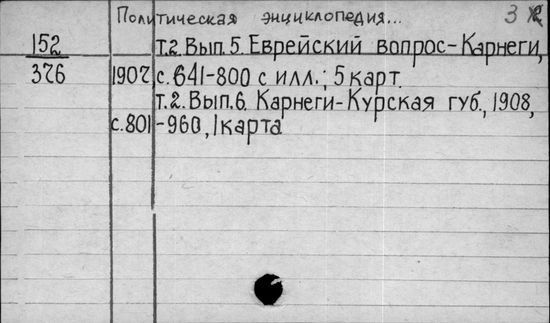 Политическая энциклопедия... 3
152 т.2. Вып. 5. Еврейский вопрос-Карнеги,
376 1907 с. 641-800 с илл.; 5 карт.
т.2. Вып. 6. Карнеги-Курская губ., 1908,
с. 801-960, 1 карта